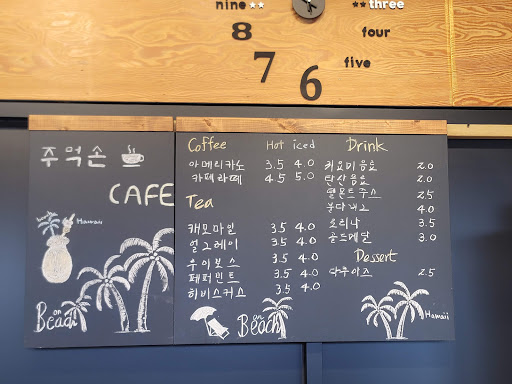 nine ★★ ★★ three
8 four
7 6 five
주먹손
CAFE
Hawaii
on
Beach
Coffee Hot iced
아메리카노 3.5 4.0
카페라떼 4.5 5.0
Tea
캐모마일 3.5 4.0
얼그레이 3.5 4.0
루이보스 3.5 4.0
페퍼민트 3.5 4.0
히비스커스 3.5 4.0
on
Beach
Drink
귀요미음료 2.0
탄산음료 2.0
웰몬트주스 2.5
분다버그 4.0
소리나 3.5
골드메달 3.0
Dessert
다쿠아즈 2.5
Hawaii